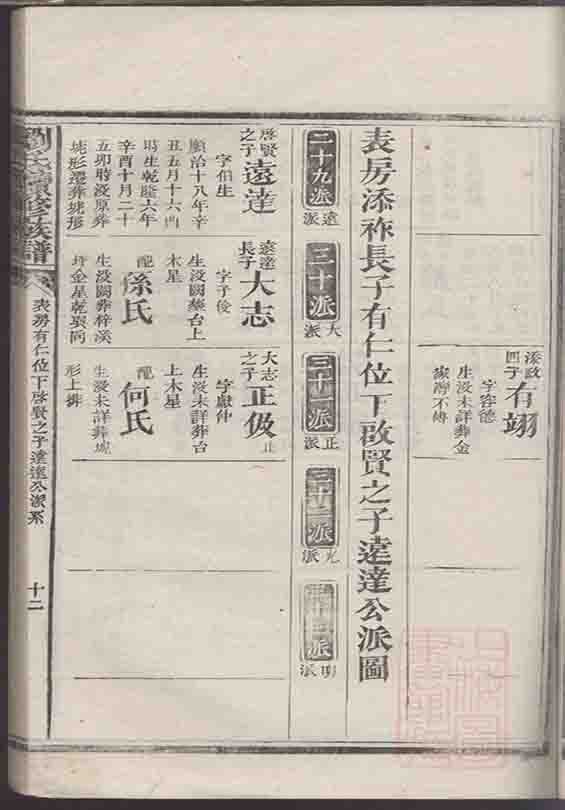 添政
四子
有翊
字容德
生没未詳葬金
家灣不傳
表房添祚長子有仁位下啟賢之子遠達公派圖
二十九派
遠派
三十派
大派
三十一派
正派
三十二派
光派
三十三派
明派
啓賢
之子
遠達
字伯生
順治十八年辛
丑五月十六酉
時生乾隆六年
辛酉十月二十
五卯時没原葬
遠達
長子
大志
字子俊
生没闕葬台上
木星
配
孫氏
生没闕葬梓溪
大志
之子
正伋
字獻仲
生没未詳葬台
上木星
配
何氏
生没未詳葬垅
形上排
劉氏續修族譜
表房有仁位下啓賢之子達遠公派系
十二